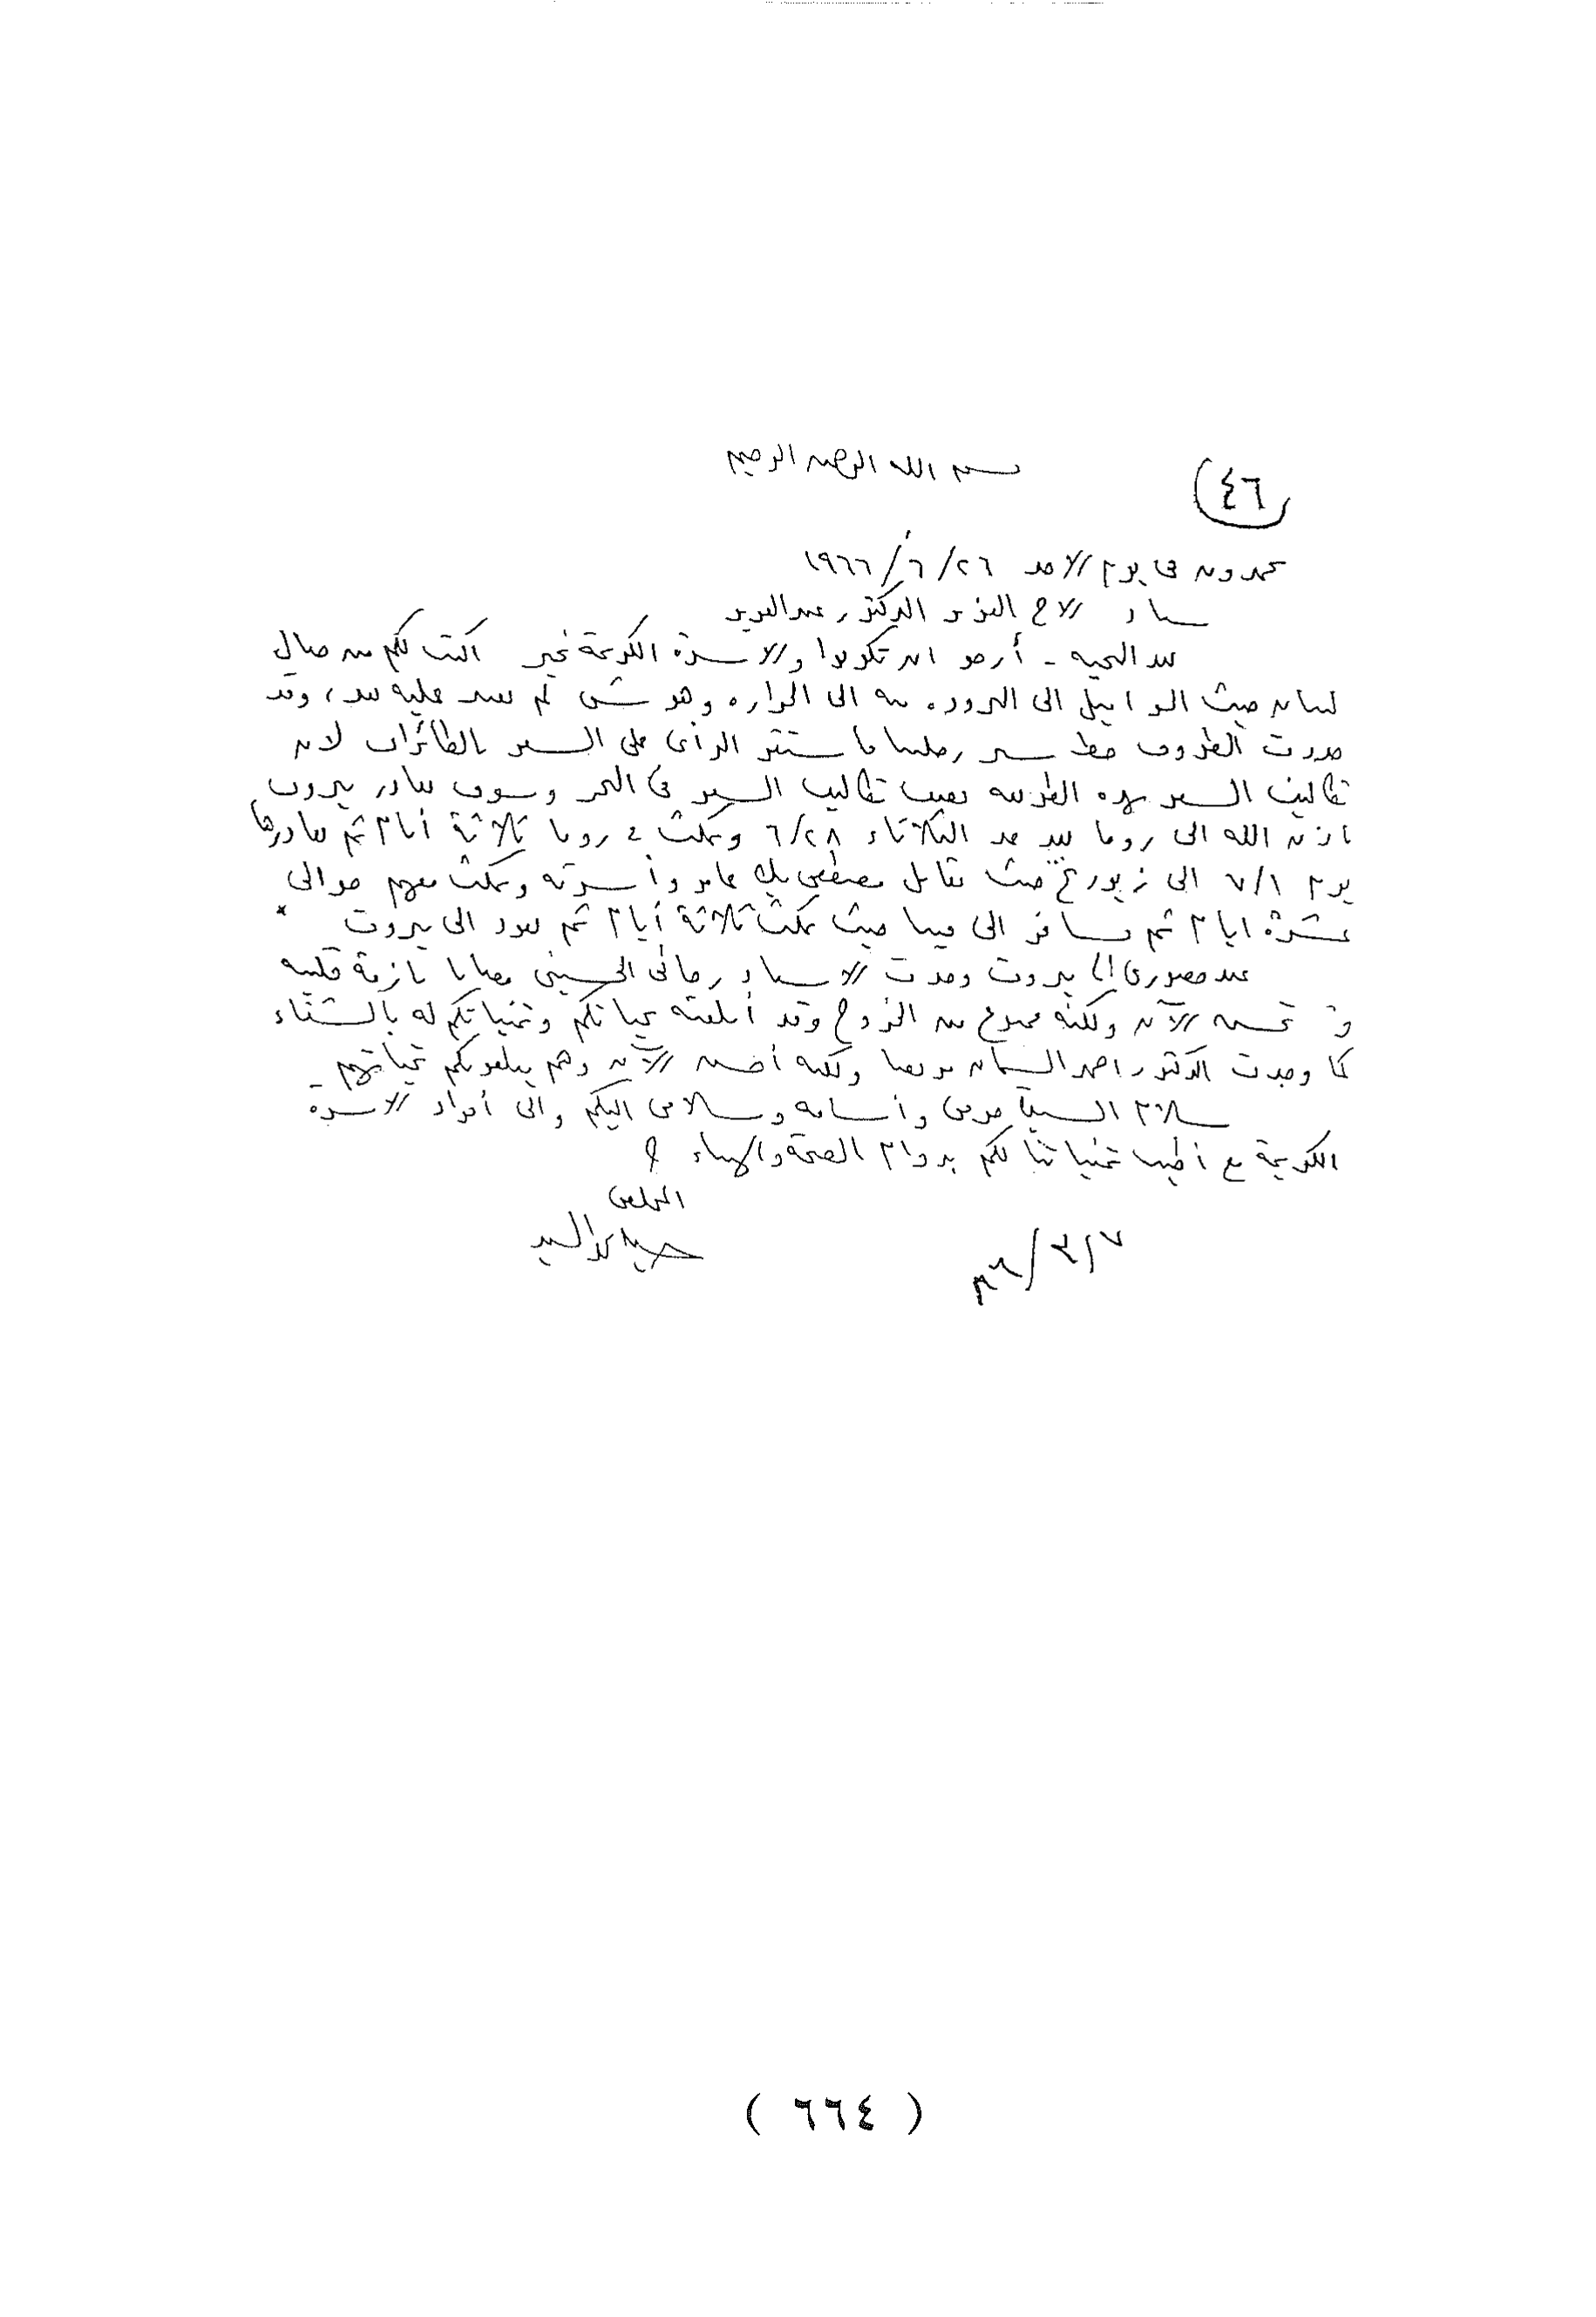 بسم الله الرحمن الرحيم
(٤٦
بحمدون في يوم الاحد ٢٦/٦/١٩٦٦
سيادة الاخ العزيز الدكتور عبد العزيز
بعد التحية - أرجو ان تكونوا والاسرة الكريمة بخير اكتب لكم من جبال
لبنان حيث الميل الى البرودة منه الى الحرارة وهو شيء لم نتعود عليه بعد، وقد
حددت الظروف خط سير رحلتنا فاستقر الرأى على السفر بالطائرات لان
تكاليف السفر بهذه الطريقة نصف تكاليف السفر في البحر وسوف نغادر بيروت
باذن الله الى روما بعد غد الثلاثاء ٦/٢٨ ونمكث في روما ثلاثة أيام ثم نغادرها
يوم ٧/١ الى زيورخ حيث نقابل مصطفى بك عامر وأسرته ونمكث معهم حوالى
عشرة ايام ثم نسافر الى فينا حيث نمكث ثلاثة أيام ثم نعود الى بيروت
عند حضورى الى بيروت وجدت الاستاذ رجائى الحسينى مصابا بازمة قلبية
وقد تحسن الآن ولكنه ممنوع من الخروج وقد أبلغته تحياتكم وتمنياتكم له بالشفاء
كما وجدت الدكتور احمد السمان مريضا ولكنه أحسن الآن وهم يبلغونكم تحياتهم
سلام السيدة حرمى وأسامه وسلامى اليكم والى أفراد الاسرة
الكريمة مع أطيب تمنياتنا لكم بدوام الصحة والهناء
المخلص
٧/٣/٨٦
( ٦٦٤ )